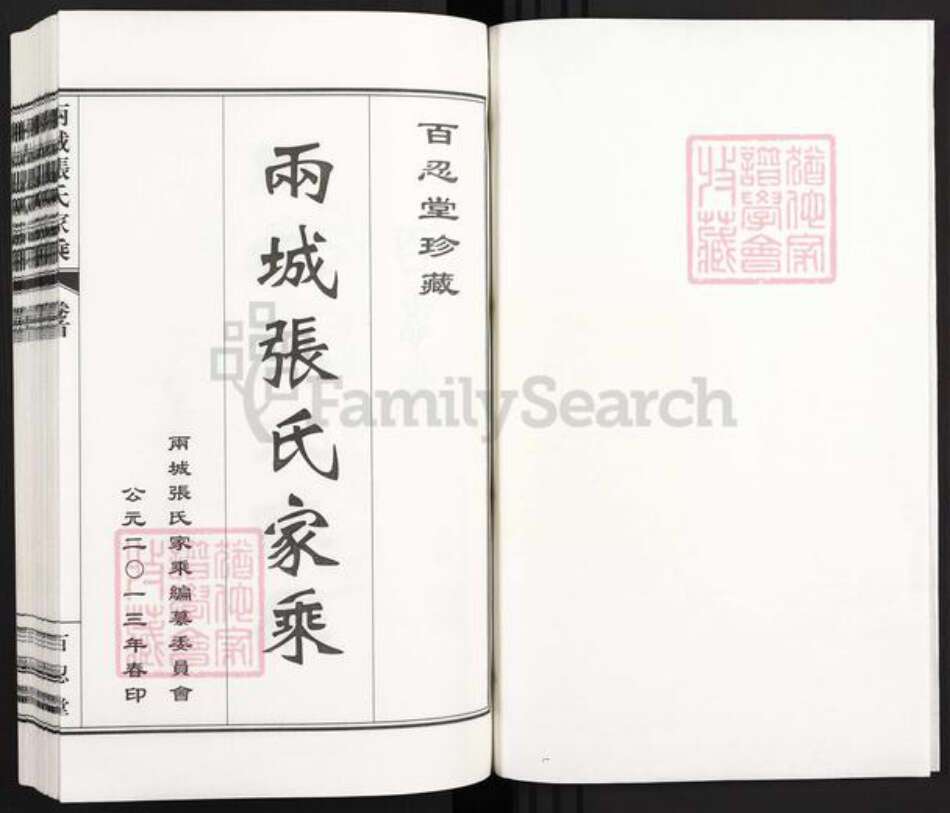 百忍堂珍藏
兩城張氏家乘
兩城張氏家乘編纂委員會
公元二〇一三年春印
兩城張氏家乘
卷首
百忍堂
FamilySearch